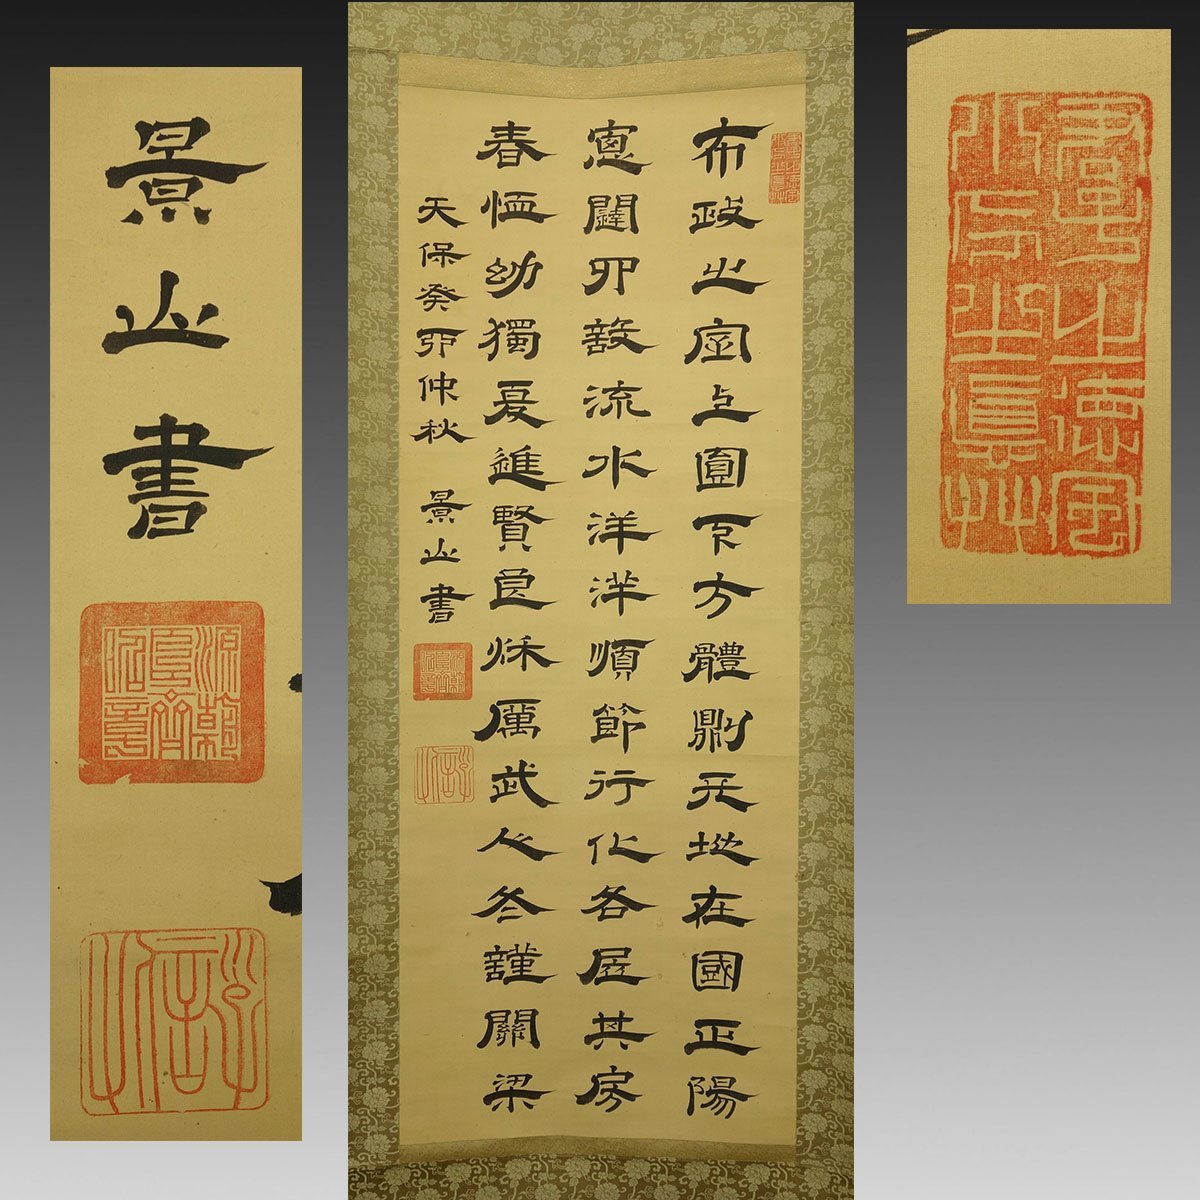 布政之室上圓下方體則天地在國正陽
窻闥四設流水洋洋順節行化各居其房
春恤幼獨夏進賢良秌厲武人冬謹關梁
天保癸卯仲秋 景山書
景山書